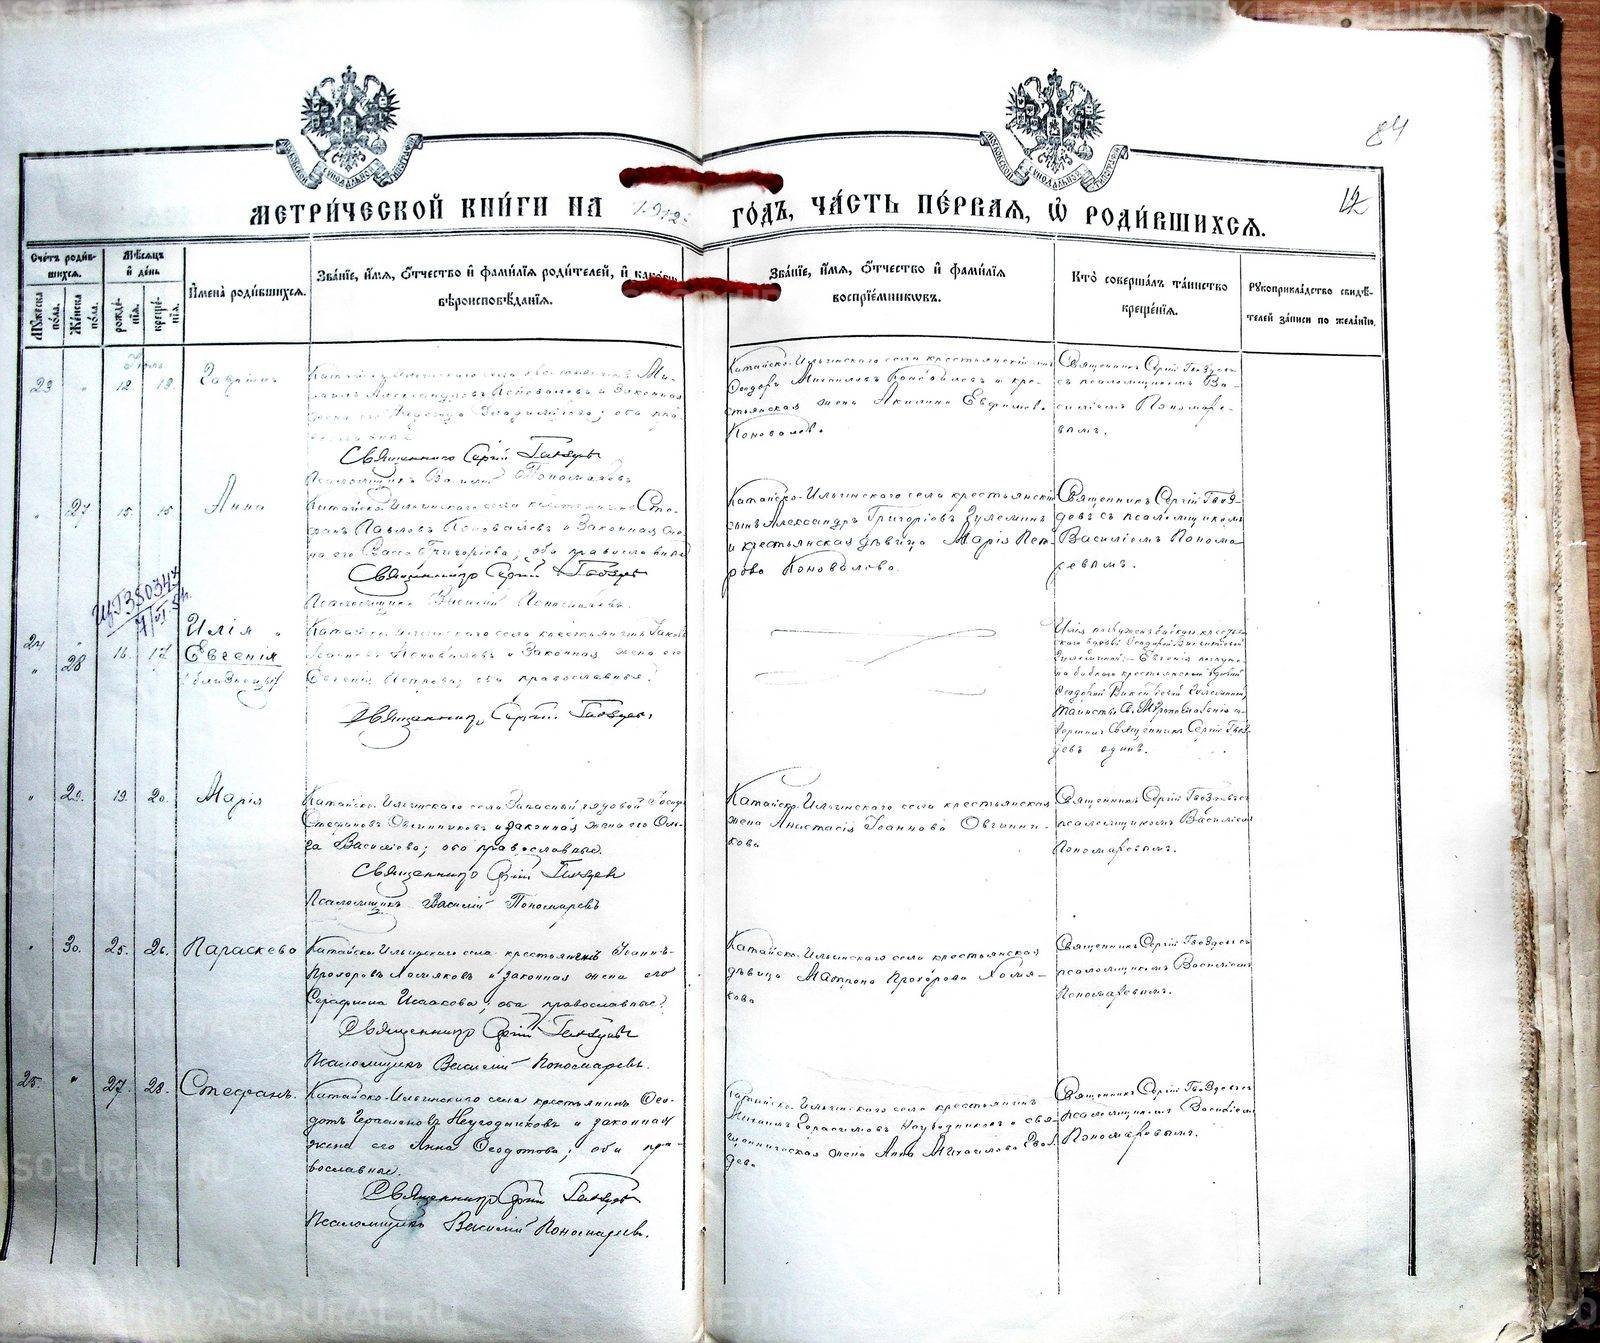 84
12
МЕТРИ́ЧЕСКОЙ КНИ́ГИ НА 1912 ГО́ДЪ, ЧА́СТЬ ПЕ́РВАЯ, Ѡ҆ РОДИ́ВШИХСЯ.
Сче́тъ роди́в-
шихся.
Мꙋ́жеска
по́ла.
Же́нска
по́ла.
Мѣ́сяцъ
и҆ де́нь
рожде́-
нїѧ.
креще́-
нїѧ.
И҆мена̀ роди́вшихся.
Зва́нїе, и҆́мя, ѻ҆́тчество и҆ фами́лїя роди́телей, и҆ како́гѡ
вѣроисповѣ́данїя.
Зва́нїе, и҆́мя, ѻ҆́тчество и҆ фами́лїя
воспрїе́мникѡвъ.
Кто̀ соверша́лъ та́инство
креще́нїя.
Рꙋкоприкла́дство свидѣ́-
телей за́писи по жела́нїю.
Іюль
23 " 12. 12.
Катайско-Ильинскаго села крестьянинъ Ми-
Александровъ Коноваловъ и законная
жена его Владимірова; оба пра-
Священникъ Сергій Гвоздевъ
Псаломщикъ Василій Пономаревъ
Катайско-Ильинскаго села крестьянскій сынъ
Ѳеодоръ Михаиловъ Коноваловъ и кре-
стьянская жена Акилина Евфимова
Коновалова.
Священникъ Сергій Гвоздевъ
съ псаломщикомъ Ва-
силіемъ Пономаре-
вымъ.
" 27 15. 15 Анна
Катайско-Ильинскаго села крестьянинъ Сте-
фанъ Павловъ Коноваловъ и законная же-
на его Васса Григоріева; оба православные
Священникъ Сергій Гвоздевъ
Псаломщикъ Василій Пономаревъ.
Катайско-Ильинскаго села крестьянскій
сынъ Александръ Григоріевъ Зулеминъ
и крестьянская дѣвица Марія Пет-
рова Коновалова.
Священникъ Сергій Гвоз-
девъ съ псаломщикомъ
Василіемъ Понома-
ревымъ.
24 " Илія "
" 28 16. 17 Евгенія
(близнецы)
Катайско-Ильинскаго села крестьянинъ Іаковъ
Іоанновъ Коноваловъ и законная жена его
Евгенія Петрова; оба православные.
Священникъ Сергій Гвоздевъ.
Илія погруженъ бабкою крестьян-
Евгенія погруже-
на бабкою крестьянской вдовой
Таинство Св. Мѵропомазанія со-
вершилъ Священникъ Сергій Гвоз-
девъ одинъ.
" 29. 19. 20. Марія
Катайско-Ильинскаго села запасный рядовой
Стефановъ Овчинниковъ и законная жена его Оль-
га Василіева; оба православные.
Священникъ Сергій Гвоздевъ
Псаломщикъ Василій Пономаревъ
Катайско-Ильинскаго села крестьянская
жена Анастасія Іоаннова Овчинни-
кова
Священникъ Сергій Гвоздевъ съ
псаломщикомъ Василіемъ
Пономаревымъ.
" 30. 25. 26. Параскева
Катайско-Ильинскаго села крестьянинъ Іоаннъ
Прохоровъ Хомяковъ и законная жена его
Серафима Исаакова; оба православные.
Священникъ Сергій Гвоздевъ
Псаломщикъ Василій Пономаревъ.
Катайско-Ильинскаго села крестьянская
дѣвица Матрона Прохорова Хомя-
кова
Священникъ Сергій Гвоздевъ съ
псаломщикомъ Василіемъ
Пономаревымъ.
25. " 27. 28. Стефанъ.
Катайско-Ильинскаго села крестьянинъ Ѳео-
дотъ Герасимовъ Неугодниковъ и законная
жена его Анна Ѳеодотова; оба пра-
вославные.
Священникъ Сергій Гвоздевъ
Псаломщикъ Василій Пономаревъ.
Катайско-Ильинскаго села крестьянинъ
Михаилъ Герасимовъ и свя-
щенническая жена Анна Михаилова Гвоз-
дева
Священникъ Сергій Гвоздевъ съ
псаломщикомъ Василіемъ
Пономаревымъ.
METRIKI.GASO-URAL.RU